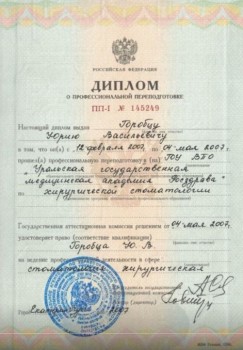 РОССИЙСКАЯ ФЕДЕРАЦИЯ
ДИПЛОМ
О ПРОФЕССИОНАЛЬНОЙ ПЕРЕПОДГОТОВКЕ
ПП-I № 145249
Настоящий диплом выдан Горобцу
Юрию Васильевичу
в том, что он(а) с 12 февраля 2007, по 04 мая 2007,
прошел(а) профессиональную переподготовку в (на) ГОУ ВПО
"Уральская государственная
медицинская академия Росздрава"
хирургической стоматологии
Государственная аттестационная комиссия решением от 04 мая 2007,
удостоверяет право (соответствие квалификации)
Горобца Ю. В.
на ведение профессиональной деятельности в сфере
стоматология хирургическая
2007